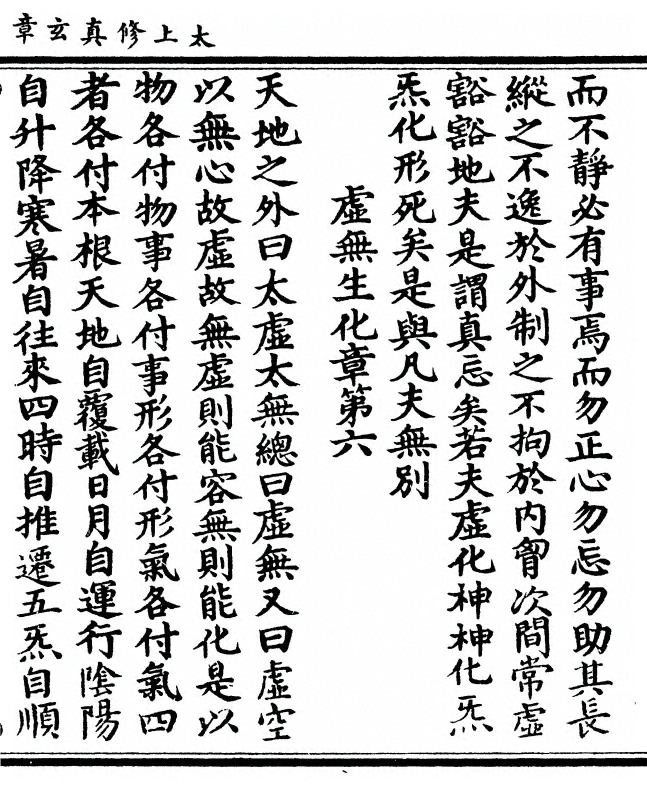 太上修真玄章
而不靜必有事焉而勿正心勿忘勿助其長
縱之不逸於外制之不拘於內胷次間常虛
豁豁地夫是謂真忘矣若夫虛化神神化炁
炁化形死矣是與凡夫無別
虛無生化章第六
天地之外曰太虛太無總曰虛無又曰虛空
以無心故虛故無虛則能容無則能化是以
物各付物事各付事形各付形氣各付氣四
者各付本根天地自覆載日月自運行陰陽
自升降寒暑自往來四時自推遷五炁自順